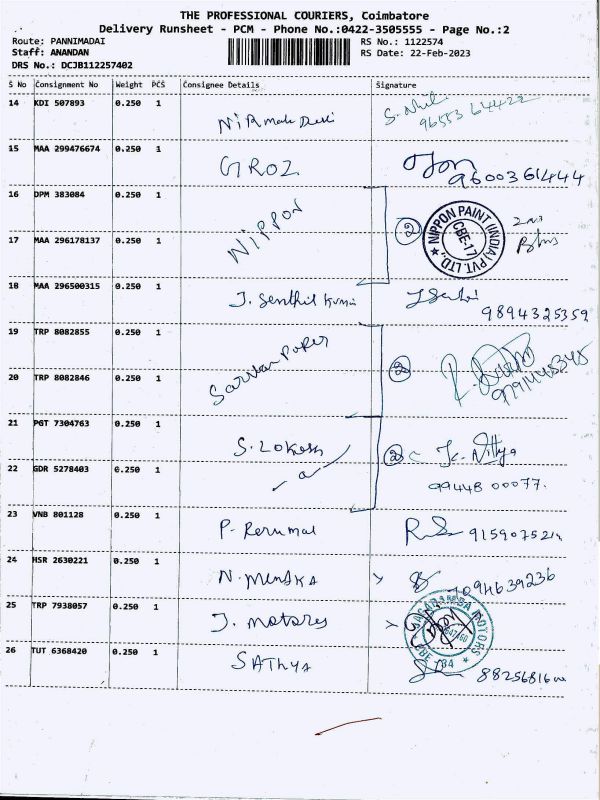 THE PROFESSIONAL COURIERS, Coimbatore
Delivery Runsheet - PCM - Phone No.:0422-3505555 - Page No.:2
Route: PANNIMADAI RS No.: 1122574
Staff: ANANDAN RS Date: 22-Feb-2023
DRS No.: DCJB112257402
S No Consignment No Weight PCS Consignee Details Signature
14 KDI 507893 0.250 1
15 MAA 299476674 0.250 1 GROZ 9600361444
16 DPM 383084 0.250 1 NIPPON 2 NIPPON PAINT (INDIA) PVT. LTD., CBE-17
17 MAA 296178137 0.250 1
18 MAA 296500315 0.250 1 J. Senthil Kumar 9894325359
19 TRP 8082855 0.250 1 2
20 TRP 8082846 0.250 1
21 PGT 7304763 0.250 1 S. Lokesh 2 K. Nithya
22 GDR 5278403 0.250 1 99448 00077.
23 VNB 801128 0.250 1 P. Perumal
24 HSR 2630221 0.250 1 N. MENAKA
25 TRP 7938057 0.250 1 J. motores
26 TUT 6368420 0.250 1 SAThyA